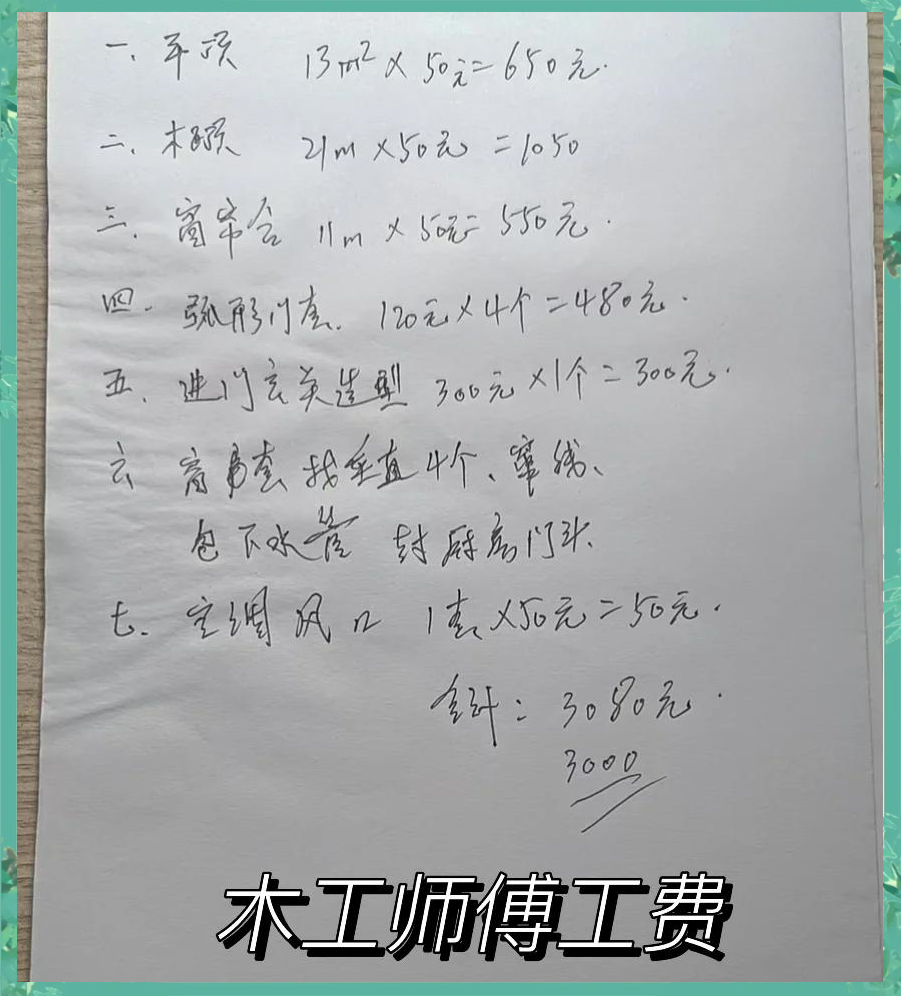 一、平顶 13m²×50元=650元.
二、木顶 21m×50元=1050
三、窗帘合 11m×50元=550元.
四. 弧形门套. 120元×4个=480元.
五、进门玄关造型 300元×1个=300元.
六 窗套找垂直4个、单线、
包下水管 封厨房门头.
七. 空调风口 1套×50元=50元.
合计: 3080元.
3000
木工师傅工费